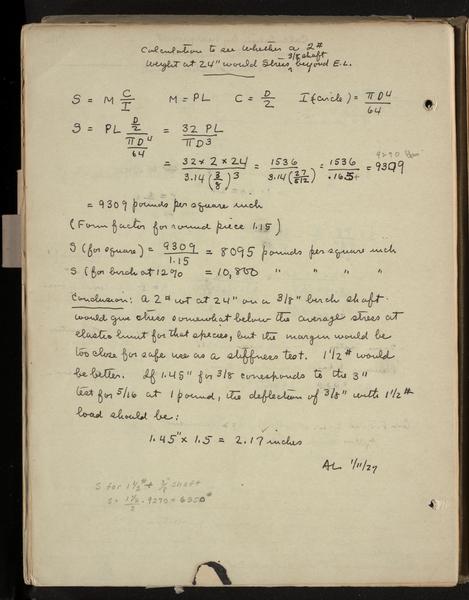 Calculation to see whether a 2#
3/8 shaft
weight at 24" would stress beyond E.L.
S = M C/I   M = PL   C = D/2   I (circle) = πD⁴/64
S = PL (D/2)/(πD⁴/64) = 32 PL/πD³
9270
= 32 x 2 x 24/3.14 (3/8)³ = 1536/3.14 (27/512) = 1536/.165+ = 9309
= 9309 pounds per square inch
(Form factor for round piece 1.15)
S (for square) = 9309/1.15 = 8095 pounds per square inch
S (for birch at 12% = 10,800 " " " "
Conclusion: A 2# wt at 24" on a 3/8" birch shaft
would give stress somewhat below the average stress at
elastic limit for that species, but the margin would be
too close for safe use as a stiffness test. 1 1/2# would
be better. If 1.45" for 3/8 corresponds to the 3"
test for 5/16 at 1 pound, the deflection of 3/8" with 1 1/2#
load should be:
1.45" x 1.5 = 2.17 inches
AL 1/11/27
S for 1 1/2# + 3/8 shaft
S = 1 1/2/2 · 9270 = 6950#